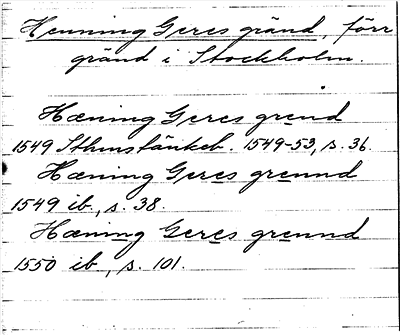 Henning Geres gränd, förr
gränd i Stockholm.
Hæning Geres grend
1549 Sthmstänkeb. 1549-53, s. 36.
Hæning Geres grennd
1549 ib., s. 38.
Hæning Geres grennd
1550 ib., s. 101.